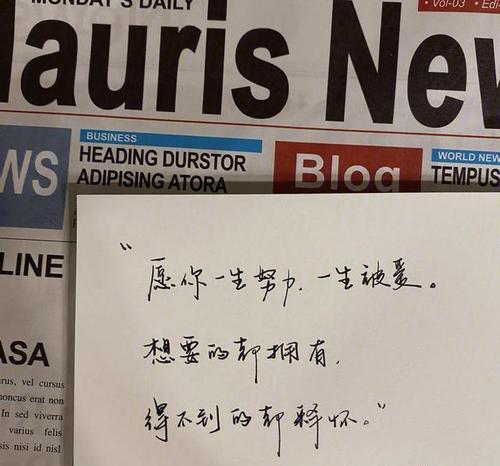 MONDAY'S DAILY
Vol-03 • Edi
lauris New
WS
BUSINESS
HEADING DURSTOR
ADIPISING ATORA
Blog
WORLD NEW
TEMPUS
LINE
ASA
rus, vel cursus
honcus erat non
In sed viverra
varius felis
sis nisi id nisl
“愿你一生努力,一生被爱。
想要的都拥有,
得不到的都释怀。”